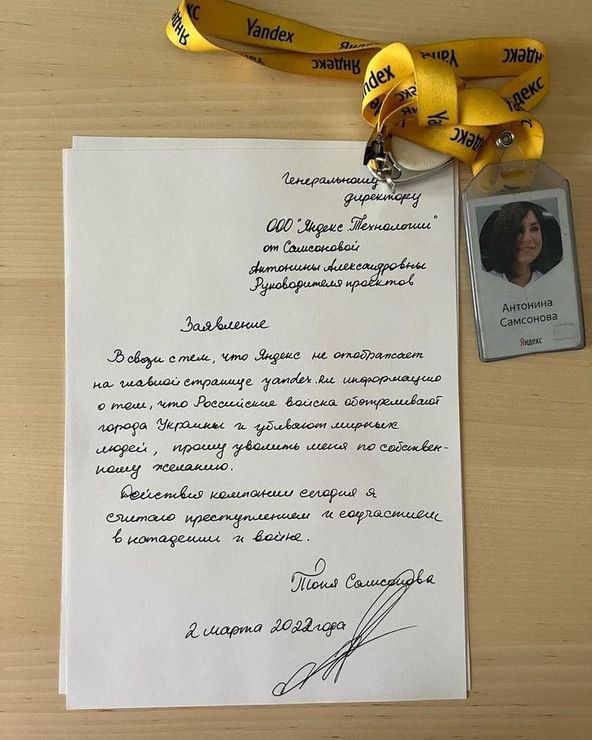 Yandex
Яндекс
Yandex
Яндекс
Yandex
Яндекс
Генеральному
директору
ООО "Яндекс Технологии"
от Самсоновой
Антонины Александровны
Руководителя проектов
Антонина
Самсонова
Яндекс
Заявление
В связи с тем, что Яндекс не отображает
на главной странице yandex.ru информацию
о том, что Российские войска обстреливают
города Украины и убивают мирных
людей, прошу уволить меня по собствен-
ному желанию.
Действия компании сегодня я
считаю преступлением и соучастием
в нападении и войне.
Тоня Самсонова
2 марта 2022 года